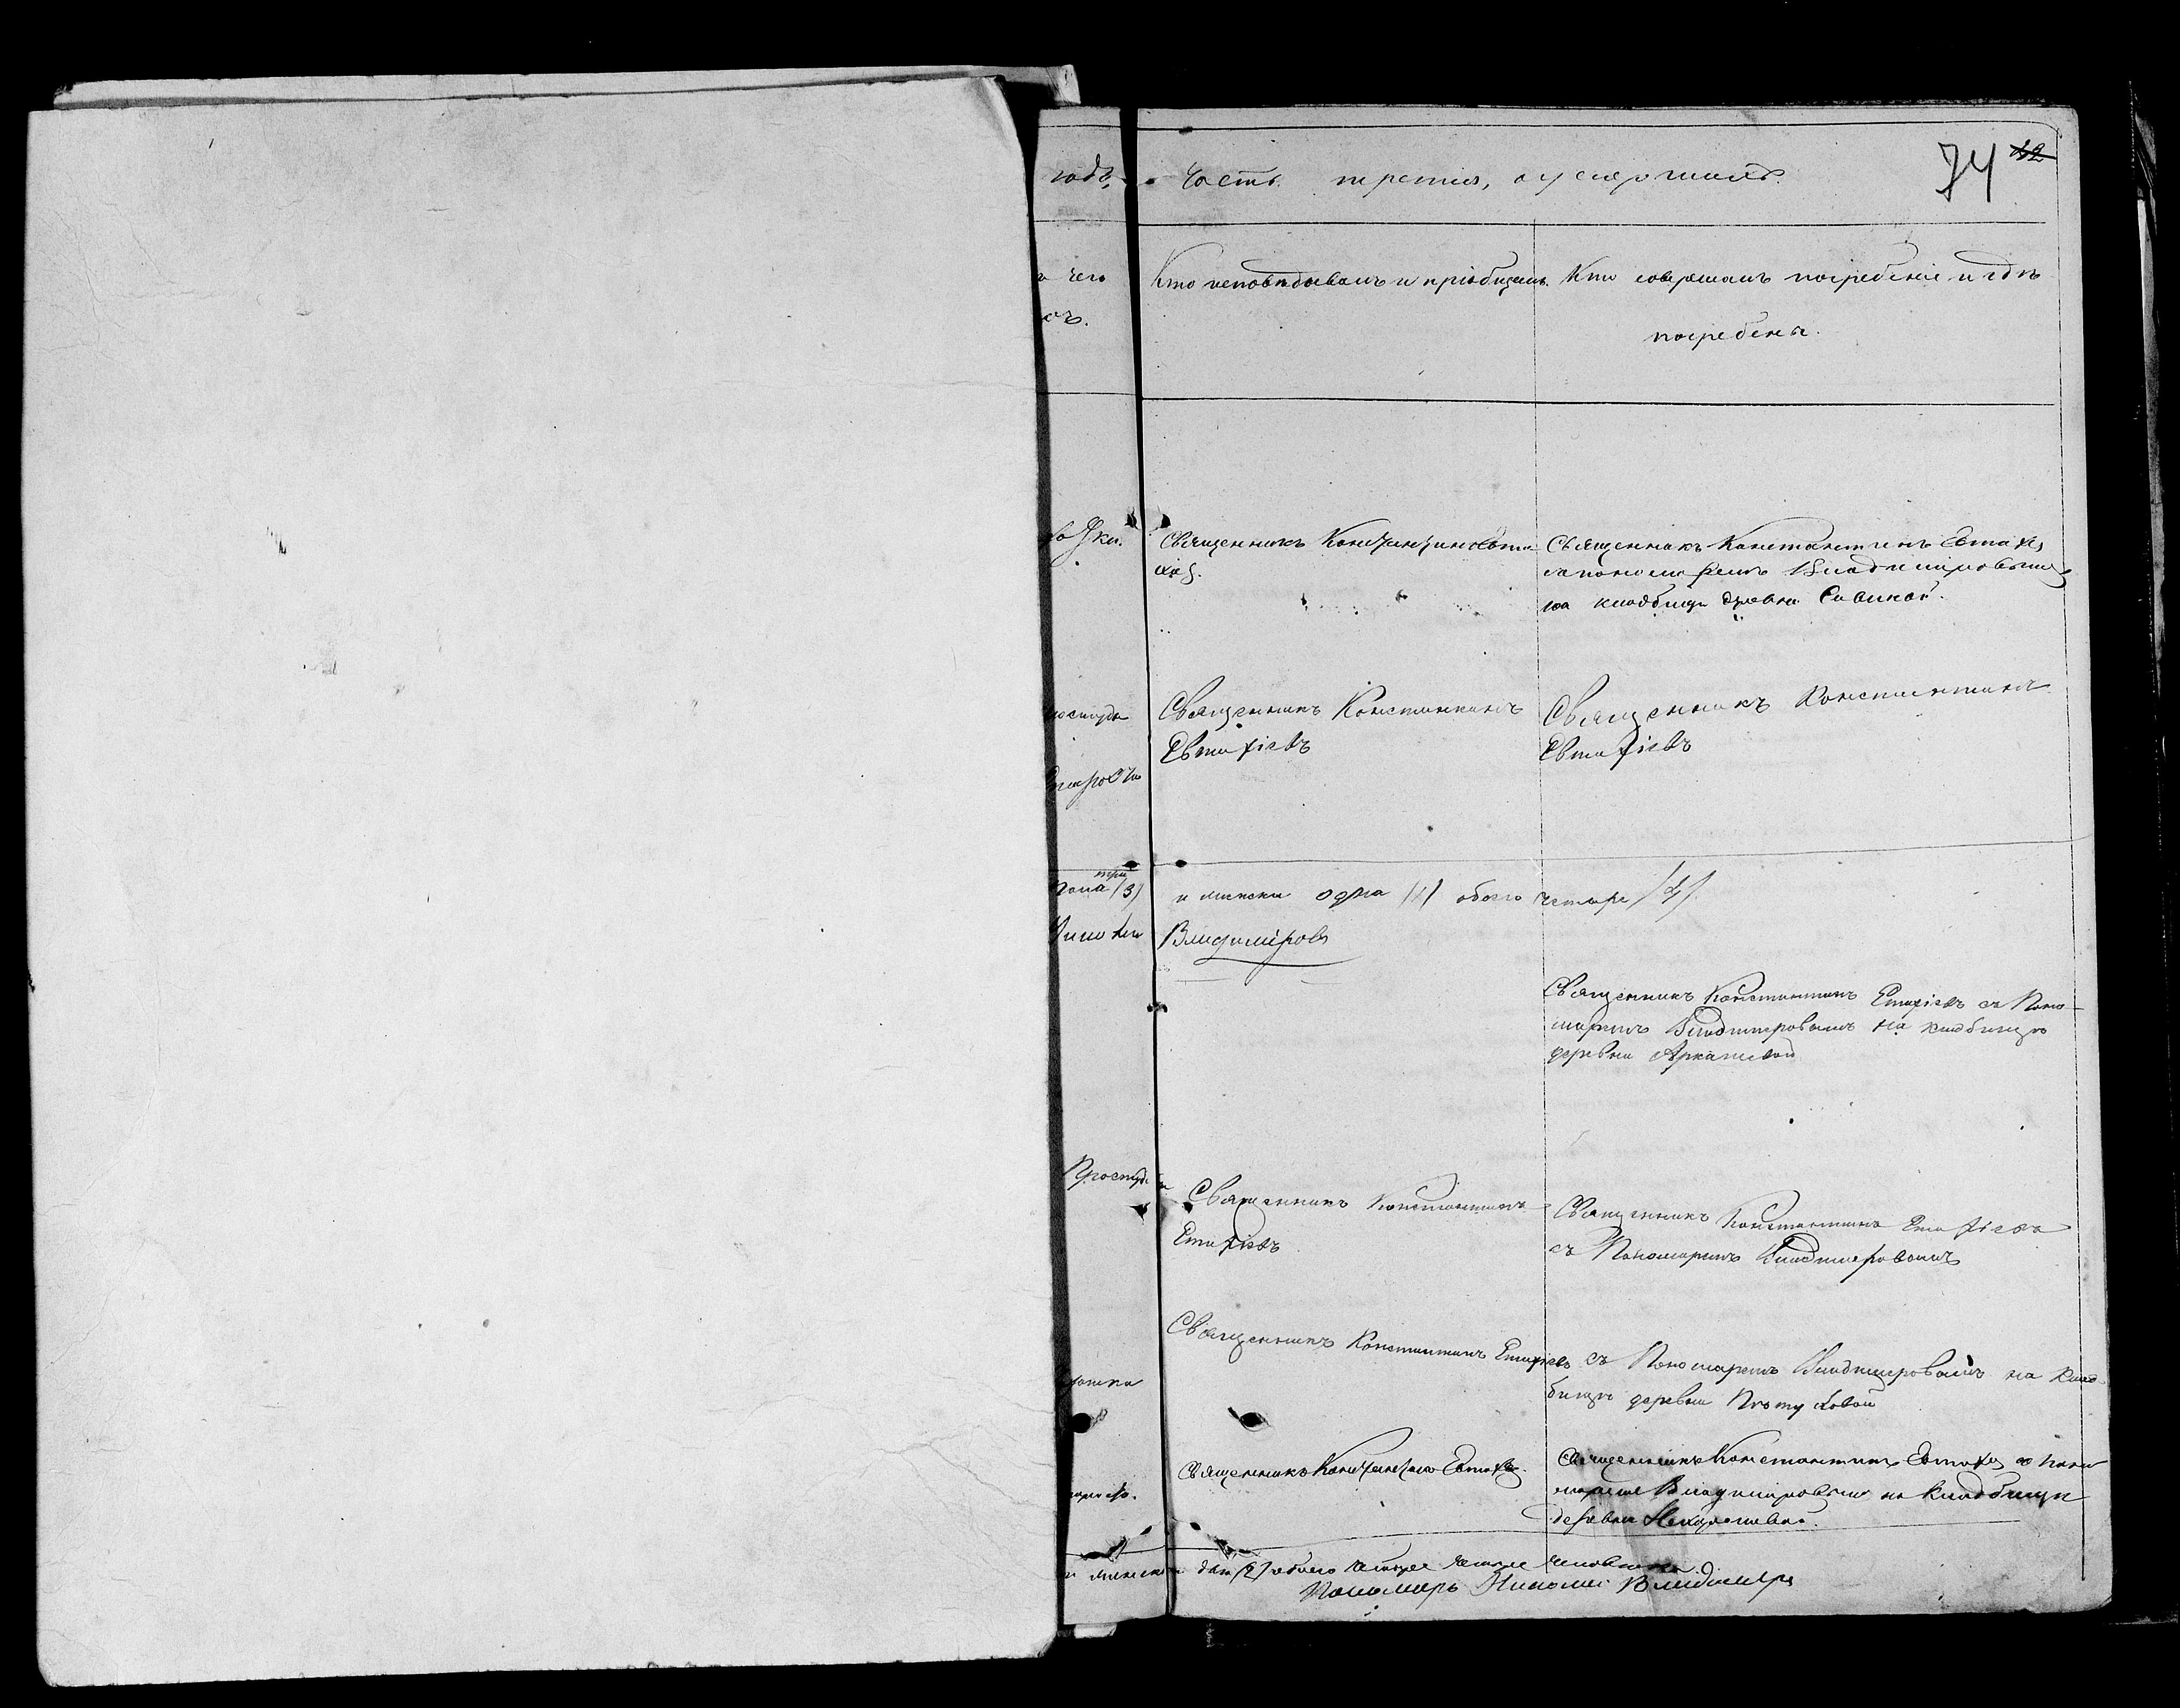 годъ. Часть третия, о умершихъ. 74 42
чего
Кто исповѣдывалъ и пріобщалъ.
Кто совершалъ погребеніе и гдѣ
погребены.
Священникъ Константинъ Евти
хіев.
Священникъ Константинъ Евтихі
съ пономаремъ Владимировымъ
на кладбищѣ деревни Савиной.
простуды
Священникъ Константинъ
Евтихіевъ
Священникъ Константинъ
Евтихіевъ
старости
пола три (3) и женска одна (1) обоего четыре (4).
Николай Владиміровъ
Священникъ Константинъ Етихіевъ съ Поно-
маремъ Владимировымъ на кладбищѣ
деревни
Простуды
Священникъ Константинъ
Етихіевъ
Священникъ Константинъ Етихіевъ
съ Пономаремъ Владимировымъ
Священникъ Константинъ Етихіевъ съ Пономаремъ Владимировымъ на клад-
бищѣ деревни
Священникъ Константинъ Евтихіев.
Священникъ Константинъ Евтихі съ Поно
маремъ Владиміровым на кладбищѣ
деревни
и женска два (2) обоего четыре человека.
Пономарь Николай Владимиръ